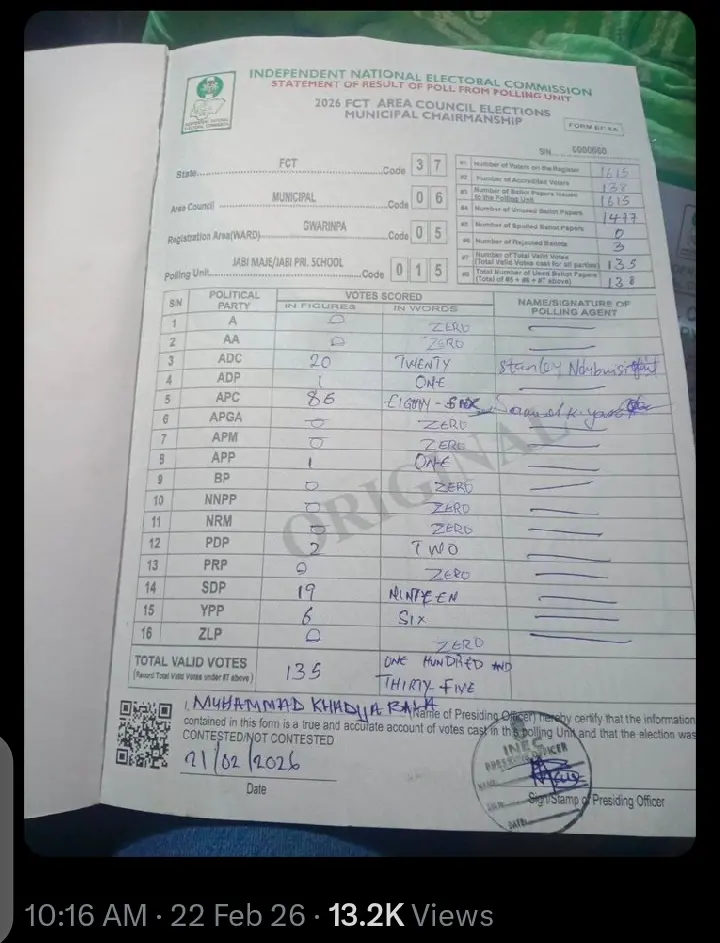 INDEPENDENT NATIONAL ELECTORAL COMMISSION
STATEMENT OF RESULT OF POLL FROM POLLING UNIT
2026 FCT AREA COUNCIL ELECTIONS
MUNICIPAL CHAIRMANSHIP
FORM EC 8A
SN... 0000660
State FCT Code 3 7
Area Council MUNICIPAL Code 0 6
Registration Area(WARD) GWARINPA Code 0 5
Polling Unit JABI MAJE/JABI PRI. SCHOOL Code 0 1 5
#1 Number of Voters on the Register 1615
#2 Number of Accredited Voters 138
#3 Number of Ballot Papers Issued to the Polling Unit 1615
#4 Number of Unused Ballot Papers 1477
#5 Number of Spoiled Ballot Papers 0
#6 Number of Rejected Ballots 3
#7 Number of Total Valid Votes (Total Valid Votes cast for all parties) 135
#8 Total Number of Used Ballot Papers (Total of #5 + #6 + #7 above) 138
SN POLITICAL PARTY VOTES SCORED IN FIGURES IN WORDS NAME/SIGNATURE OF POLLING AGENT
1 A 0 ZERO
2 AA 0 ZERO
3 ADC 20 TWENTY Stanley
4 ADP 1 ONE
5 APC 86 EIGHTY-SIX
6 APGA 0 ZERO
7 APM 0 ZERO
8 APP 1 ONE
9 BP 0 ZERO
10 NNPP 0 ZERO
11 NRM 0 ZERO
12 PDP 2 TWO
13 PRP 0 ZERO
14 SDP 19 NINTEEN
15 YPP 6 SIX
16 ZLP 0 ZERO
TOTAL VALID VOTES (Record Total Valid Votes under #7 above) 135 ONE HUNDRED AND THIRTY FIVE
ORIGINAL
I, MUHAMMAD KHADIJA (Name of Presiding Officer) hereby certify that the information
contained in this form is a true and accurate account of votes cast in this polling Unit and that the election was
CONTESTED/NOT CONTESTED
21/02/2026
Date
INEC
PRESIDING OFFICER
NAME
SIGN
DATE
Sign/Stamp of Presiding Officer
10:16 AM · 22 Feb 26 · 13.2K Views